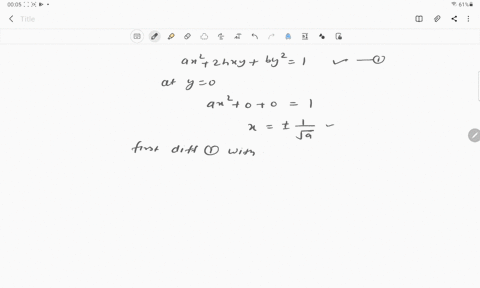 00:05
61%
Title
ax² + 2hxy + by² = 1 ✓ —①
at y=0
ax² + 0 + 0 = 1
x = ± 1/√a ✓
first diff ① with